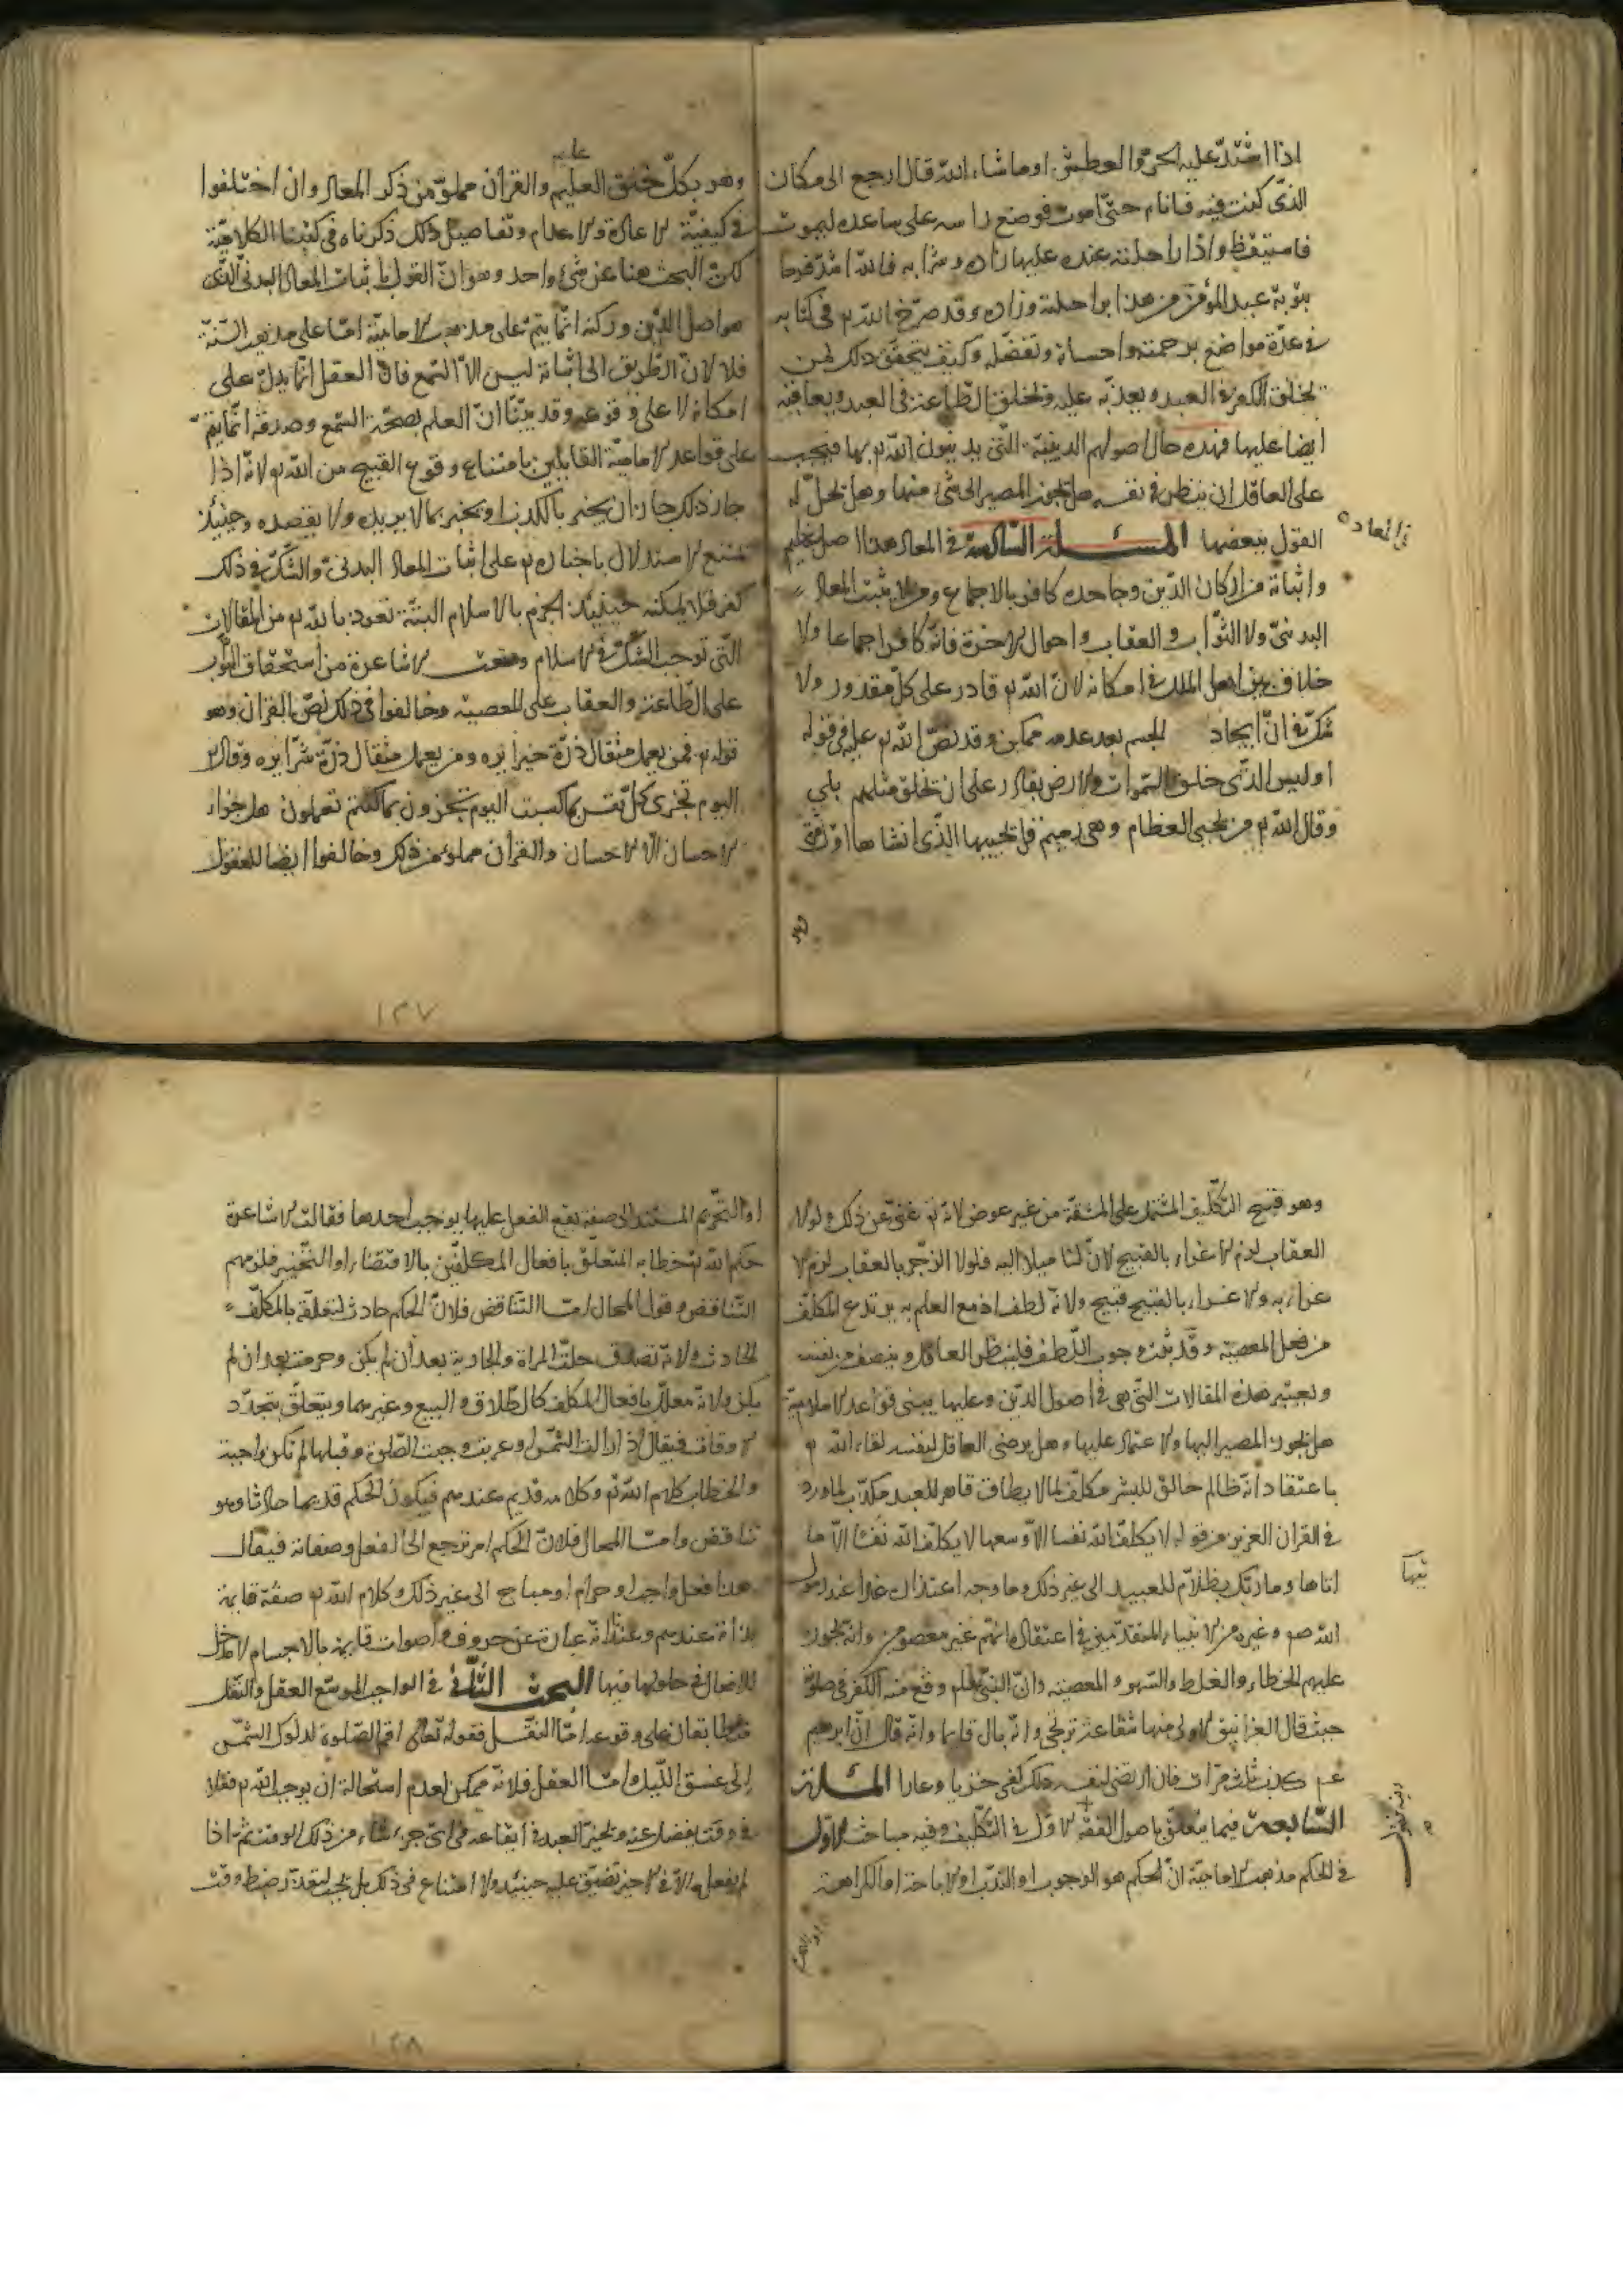 اذا اشتدّ عليه الحرّ والعطش او ما شاء الله قال ارجع الى مكان
الذى كنت فيه فانام حتّى اموت فوضع راسه على ساعده ليموت
فاستيقظ واذا راحلته عنده عليها زاده وشرابه فالله اشدّ فرحا
بتوبة عبده المؤمن من هذا براحلته وزاده وقد صرّح الله تم فى كتابه
فى عدّة مواضع برحمته واحسانه وتفضّله وكيف يتحقق ذلك لمن
يخلق الكفر فى العبد ويعذّبه عليه ويخلق الطاعة فى العبد ويعاقبه
ايضا عليها فهذه حال اصولهم الدينيّة التّى يدينون الله تم بها فيجب
على العاقل ان ينظر فى نفسه هل يجوز المصير الى شئ منها وهل يحلّ له
القول ببعضها المسئلة السادسة فى المعاد هذا اصل عظيم
فى المعاد
واثباته من اركان الدّين وجاحده كافر بالاجماع ومن لا يثبت المعاد
البدنىّ ولا الثّواب والعقاب واحوال الاخرة فانّه كافر اجماعا ولا
خلاف بين اهل الملل فى امكانه لانّ الله تم قادر على كلّ مقدور ولا
شكّ فى انّ ايجاد الجسم بعد عدمه ممكن وقد نصّ الله تم عليه فى قوله
اوليس الذّى خلق السّموات والارض بقادر على ان يخلق مثلهم بلى
وقال الله تم من يحيى العظام وهى رميم قل يحييها الذّى انشاها اوّل مرّة
وهو
وهو بكلّ خلق عليم والقرآن مملوّ من ذكر المعاد وان اختلفوا
فى كيفيّة الاعادة والاعدام وتفاصيل ذلك ذكرناه فى كتبنا الكلاميّة
لكن البحث هنا عن شئ واحد وهو انّ القول باثبات المعاد البدنىّ الذّى
هو اصل الدّين وركنه انّما يتمّ على مذهب الاماميّة امّا على مذهب السّنّة
فلا لانّ الطّريق الى اثباته ليس الاّ السّمع فانّ العقل انّما يدلّ على
امكانه لا على وقوعه وقد بيّنّا انّ العلم بصحّة السّمع وصدقه انّما يتمّ
على قواعد الاماميّة القايلين بامتناع وقوع القبيح من الله تم لانّه اذا
جاز ذلك جاز ان يخبر بالكذب او يخبر بما لا يريده ولا يقصده وحينئذ
يمتنع الاستدلال باخباره تم على اثبات المعاد البدنىّ والشّكّ فى ذلك
كفر فلا يمكنه حينئذ الجزم بالاسلام البتّة نعوذ بالله تم من المقالات
التّى توجب الشّكّ فى الاسلام ومنعت الاشاعرة من استحقاق الثّواب
على الطّاعة والعقاب على المعصية وخالفوا فى ذلك نصّ القرآن وهو
قوله تم فمن يعمل مثقال ذرّة خيرا يره ومن يعمل مثقال ذرّة شرّا يره وقال تم
اليوم تجزى كلّ نفس بما كسبت اليوم تجزون بما كنتم تعملون هل جزاء
الاحسان الاّ الاحسان والقرآن مملوء من ذلك وخالفوا ايضا المعقول
١٣٧
وهو قبح التّكليف المشتمل على المشقّة من غير عوض لانّه تم غنىّ عن ذلك ولولا
العقاب لزم الاغراء بالقبيح لانّ لنا ميلا اليه فلولا الزّجر بالعقاب لزم الا
غراء به والاغراء بالقبيح قبيح ولانّه لطف اذ مع العلم به يرتدع المكلّف
من فعل المعصية وقد ثبت وجوب اللّطف فلينظر العاقل وينصف من نفسه
ويعتبر هذه المقالات التّى هى فى اصول الدّين وعليها يبنى قواعد الاسلاميّة
هل يجوز المصير اليها والاعتماد عليها وهل يرضى العاقل لنفسه لقاء الله تم
باعتقاد انّه ظالم خالق للشر مكلّف لما لا يطاق قاهر للعبد مكذّب لما ورد
فى القران العزيز من قوله لا يكلّف الله نفسا الاّ وسعها لا يكلّف الله نفسا الاّ ما
اتاها وما ربّك بظلاّم للعبيد الى غير ذلك وما وجه اعتذاره غدا عند رسول
الله صم وغيره من الانبياء المتقدّمين فى اعتقاده انّهم غير معصومين وانّه يجوز
عليهم الخطاء والغلط والسّهو والمعصية وانّ النّبىّ صلم وقع منه الكفر فى صلوته
حيث قال الغرانيق الاولى منها شفاعة ترتجى وانّه بال قائما وانّه قال انّ ابرهيم
عم كذب ثلث مرّات فان ارتضى لنفسه ذلك كفى خزيا وعارا المسئلة
السّابعة فيما يتعلّق باصول الفقه الاوّل فى التّكليف وفيه مباحث الاوّل
فى الحكم مذهب الاماميّة انّ الحكم هو الوجوب او النّدب او الاباحة او الكراهة
او التّحريم
او التّحريم المستند الى صفة يقع الفعل عليها يوجب احدها فقالت الاشاعرة
حكم الله تم خطابه المتعلّق بافعال المكلّفين بالاقتضاء او التّخيير فلزمهم
التّناقض وقول المحال امّا التّناقض فلانّ الحكم حادث لتعلّقه بالمكلّف
الحادث ولانّه تصدق حلّت المراة والجارية بعد أن لم يكن وحرمت بعد ان لم
يكن ولانّه معلّل بافعال المكلّف كالطّلاق والبيع وغيرهما ويتعلّق بتجدّد
الاوقات فيقال اذا زالت الشّمس او غربت وجبت الصّلوة وقبلها لم تكن واجبة
والخطاب كلام الله تم وكلامه قديم عندهم فيكون الحكم قديما حادثا وهو
تناقض وامّا المحال فلانّ الحكم امر ترجع الى الفعل وصفاته فيقال
هذا فعل واجب او حرام او مباح الى غير ذلك وكلام الله تم صفة قايمة
بذاته عندهم وعندنا انّه عبارة عن حروف واصوات قايمة بالاجسام لا مدخل
للافعال فى حلولها فيها البحث الثّانى فى الواجب الموسّع العقل والنّقل
متطابقان على وقوعه امّا النّقل فقوله تعالى اقم الصّلوة لدلوك الشّمس
الى غسق الّيل وامّا العقل فلانّه ممكن لعدم استحالة ان يوجب الله تم فعلا
فى وقت يفضل عنه ويخيّر العبد فى ايقاعه فى اىّ جزء شاء من ذلك الوقت ثمّ اذا
لم يفعل الاّ فى الاخير تضيّق عليه حينئذ ولا امتناع فى ذلك بل يجب لتعذّر ضبط وقت
١٣٨